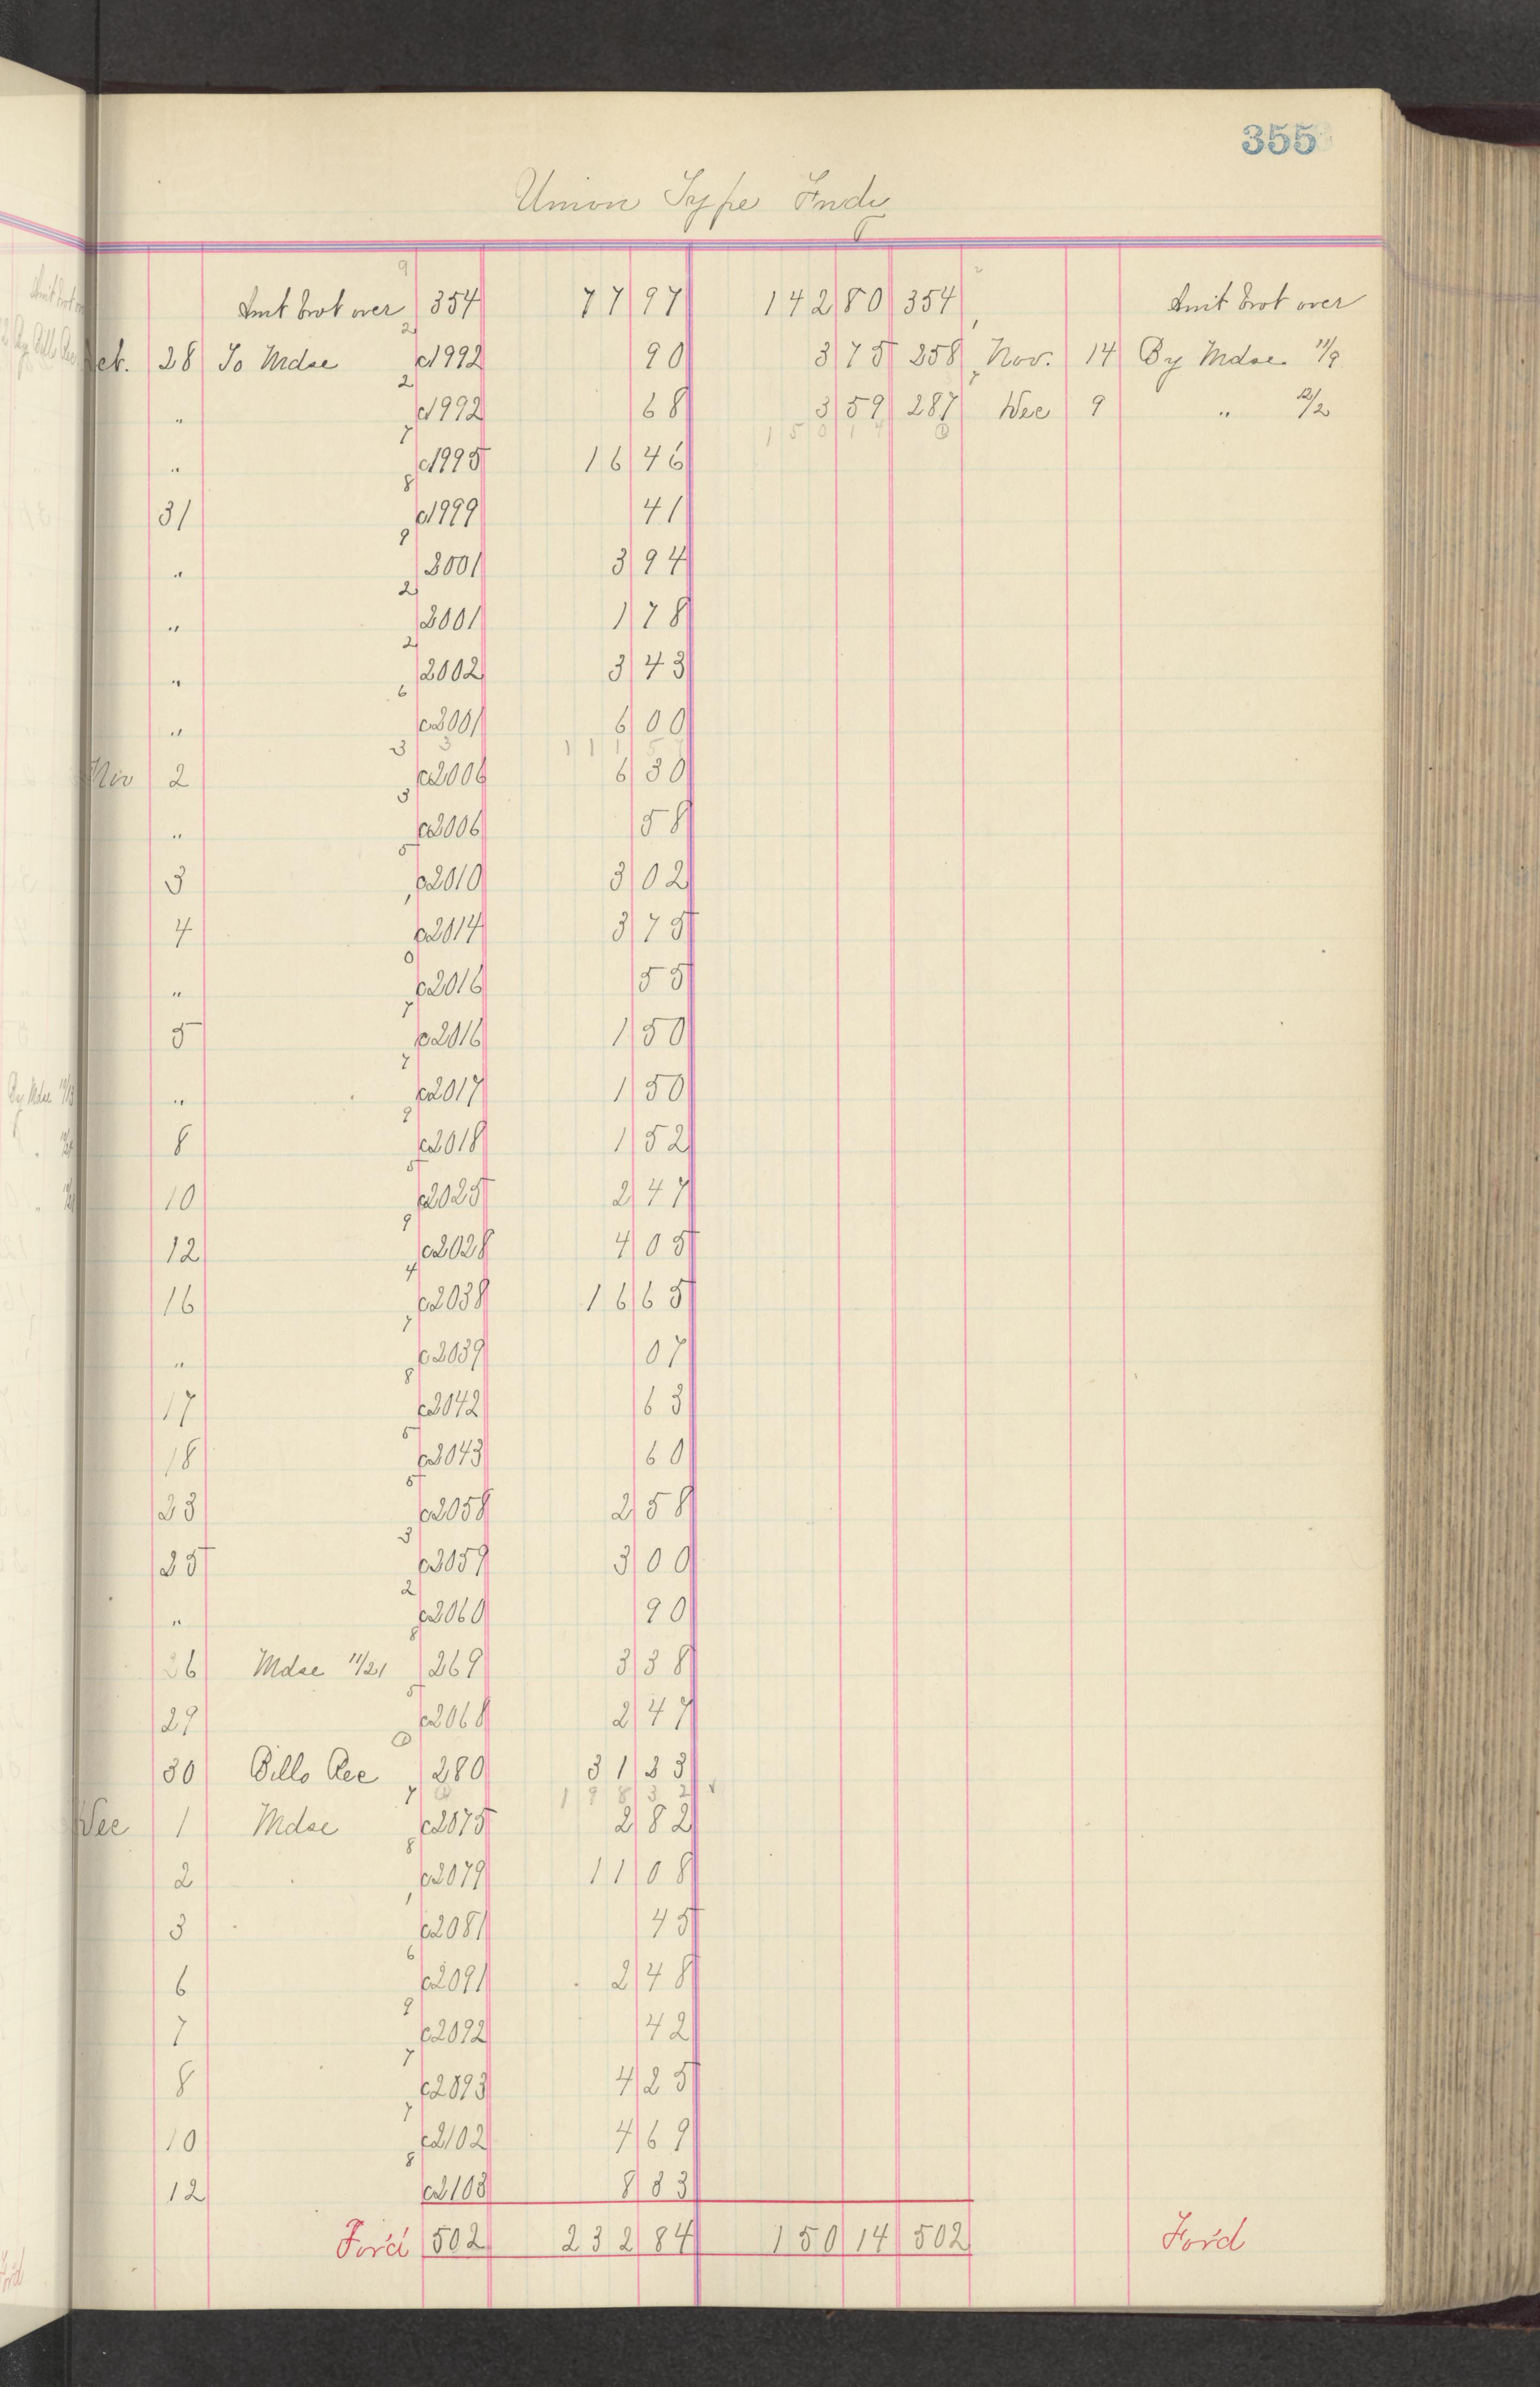 355
Union Type Fndy
Amt brot over 354 77 97 142 80 354 Amt brot over
Oct. 28 To Mdse c1992 90 3 75 258 Nov. 14 By Mdse 11/9
" c1992 68 3 59 287 Dec 9 " 12/2
150 14
" c1995 16 46
31 c1999 41
" 2001 3 94
" 2001 1 78
" 2002 3 43
" c2001 6 00
111 5
Nov 2 c2006 6 30
" c2006 58
3 c2010 3 02
4 c2014 3 75
" c2016 55
5 c2016 1 50
" c2017 1 50
8 c2018 1 52
10 c2025 2 47
12 c2028 4 05
16 c2038 16 65
" c2039 07
17 c2042 63
18 c2043 60
23 c2058 2 58
25 c2059 3 00
" c2060 90
26 Mdse 11/21 269 3 38
29 c2068 2 47
30 Bills Rec 280 31 33
198 32
Dec 1 Mdse c2075 2 82
2 c2079 11 08
3 c2081 45
6 c2091 2 48
7 c2092 42
8 c2093 4 25
10 c2102 4 69
12 c2108 8 33
For'd 502 232 84 150 14 502 For'd